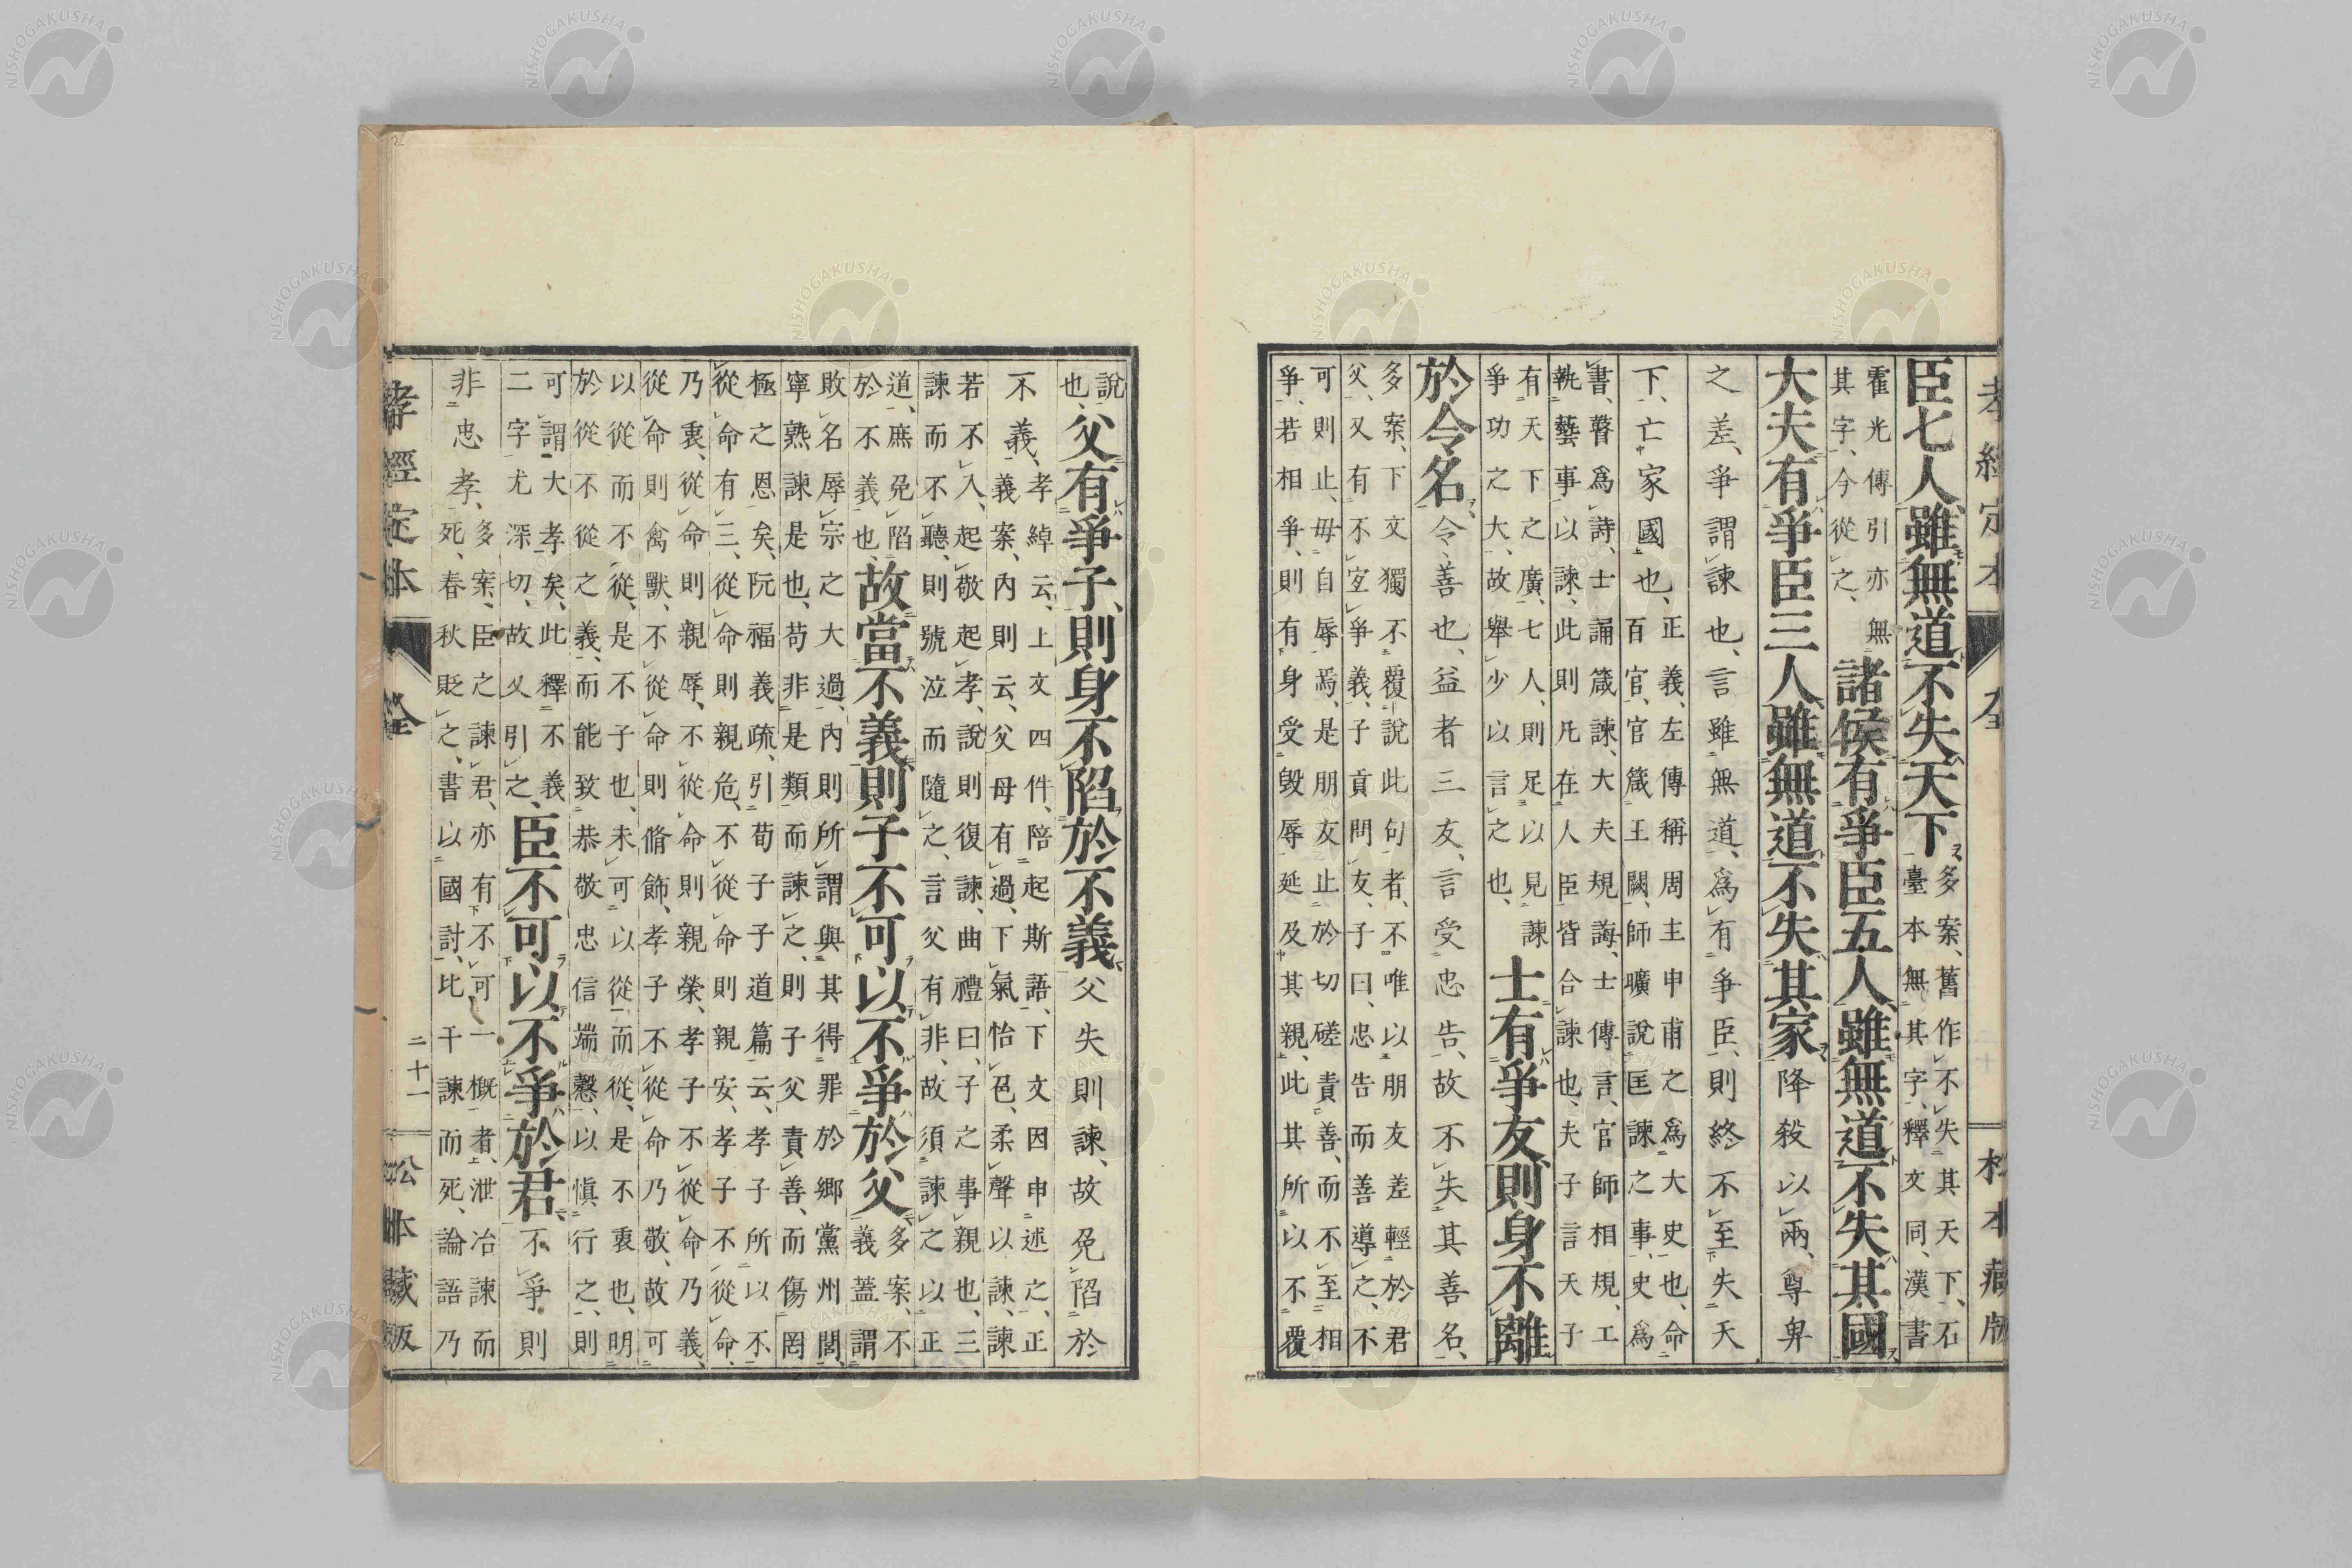 孝經定本 全 松本藏版
臣七人、雖無道、不失天下、
多案、舊作不失其天下、石
臺本無其字、釋文同、漢書
霍光傳引亦無
其字、今從之、
諸侯有爭臣五人、雖無道、不失其國
大夫有爭臣三人、雖無道、不失其家、降殺以兩、尊卑
之差、爭謂諫也、言雖無道、爲有爭臣、則終不至失天
下、亡家國也、
正義、左傳稱周主申甫之爲大史也、命
百官、官箴王闕、師曠說匡諫之事、史爲
書、瞽爲詩、士誦箴諫、大夫規誨、士傳言、官師相規、工
執藝事以諫、此則凡在人臣皆合諫也、夫子言天子
有天下之廣、七人、則足以見諫
爭功之大、故舉少以言之也、
士有爭友、則身不離
於令名、令、善也、益者三友、言受忠告、故不失其善名、
多案、下文獨不覆說此句者、不唯以朋友差輕於君
父、又有不宜爭義、子貢問友、子曰、忠告而善導之、不
可則止、毋自辱焉、是朋友止於切磋責善、而不至相
爭、若相爭、則有身受毀辱延及其親、此其所以不覆
說
也、
父有爭子、則身不陷於不義、父失則諫、故免陷於
不義、
孝綽云、上文四件、陪起斯語、下文因申述之、正
義案、內則云、父母有過、下氣怡色、柔聲以諫、諫
若不入、起敬起孝、說則復諫、曲禮曰、子之事親也、三
諫而不聽、則號泣而隨之、言父有非、故須諫之以正
道、庶免陷
於不義也、
故當不義、則子不可以不爭於父、
多案、不
義蓋謂
敗名辱宗之大過、內則所謂與其得罪於鄉黨州閭、
寧熟諫是也、苟非是類而諫之、則子父責善、而傷罔
極之恩矣、阮福義疏、引荀子子道篇云、孝子所以不
從命有三、從命則親危、不從命則親安、孝子不從命、
乃衷、從命則親辱、不從命則親榮、孝子不從命乃義、
從命則禽獸、不從命則脩飾、孝子不從命乃敬、故可
以從而不從、是不子也、未可以從而從、是不衷也、明
於從不從之義、而能致恭敬忠信端愨、以愼行之、則
可謂大孝矣、此釋不義
二字尤深切、故又引之、
臣不可以不爭於君、不爭則
非忠孝、
多案、臣之諫君、亦有不可一概者、泄冶諫而
死、春秋貶之、書以國討、比干諫而死、論語乃
孝經定本 全 二十一 松本藏版
NISHOGAKUSHA